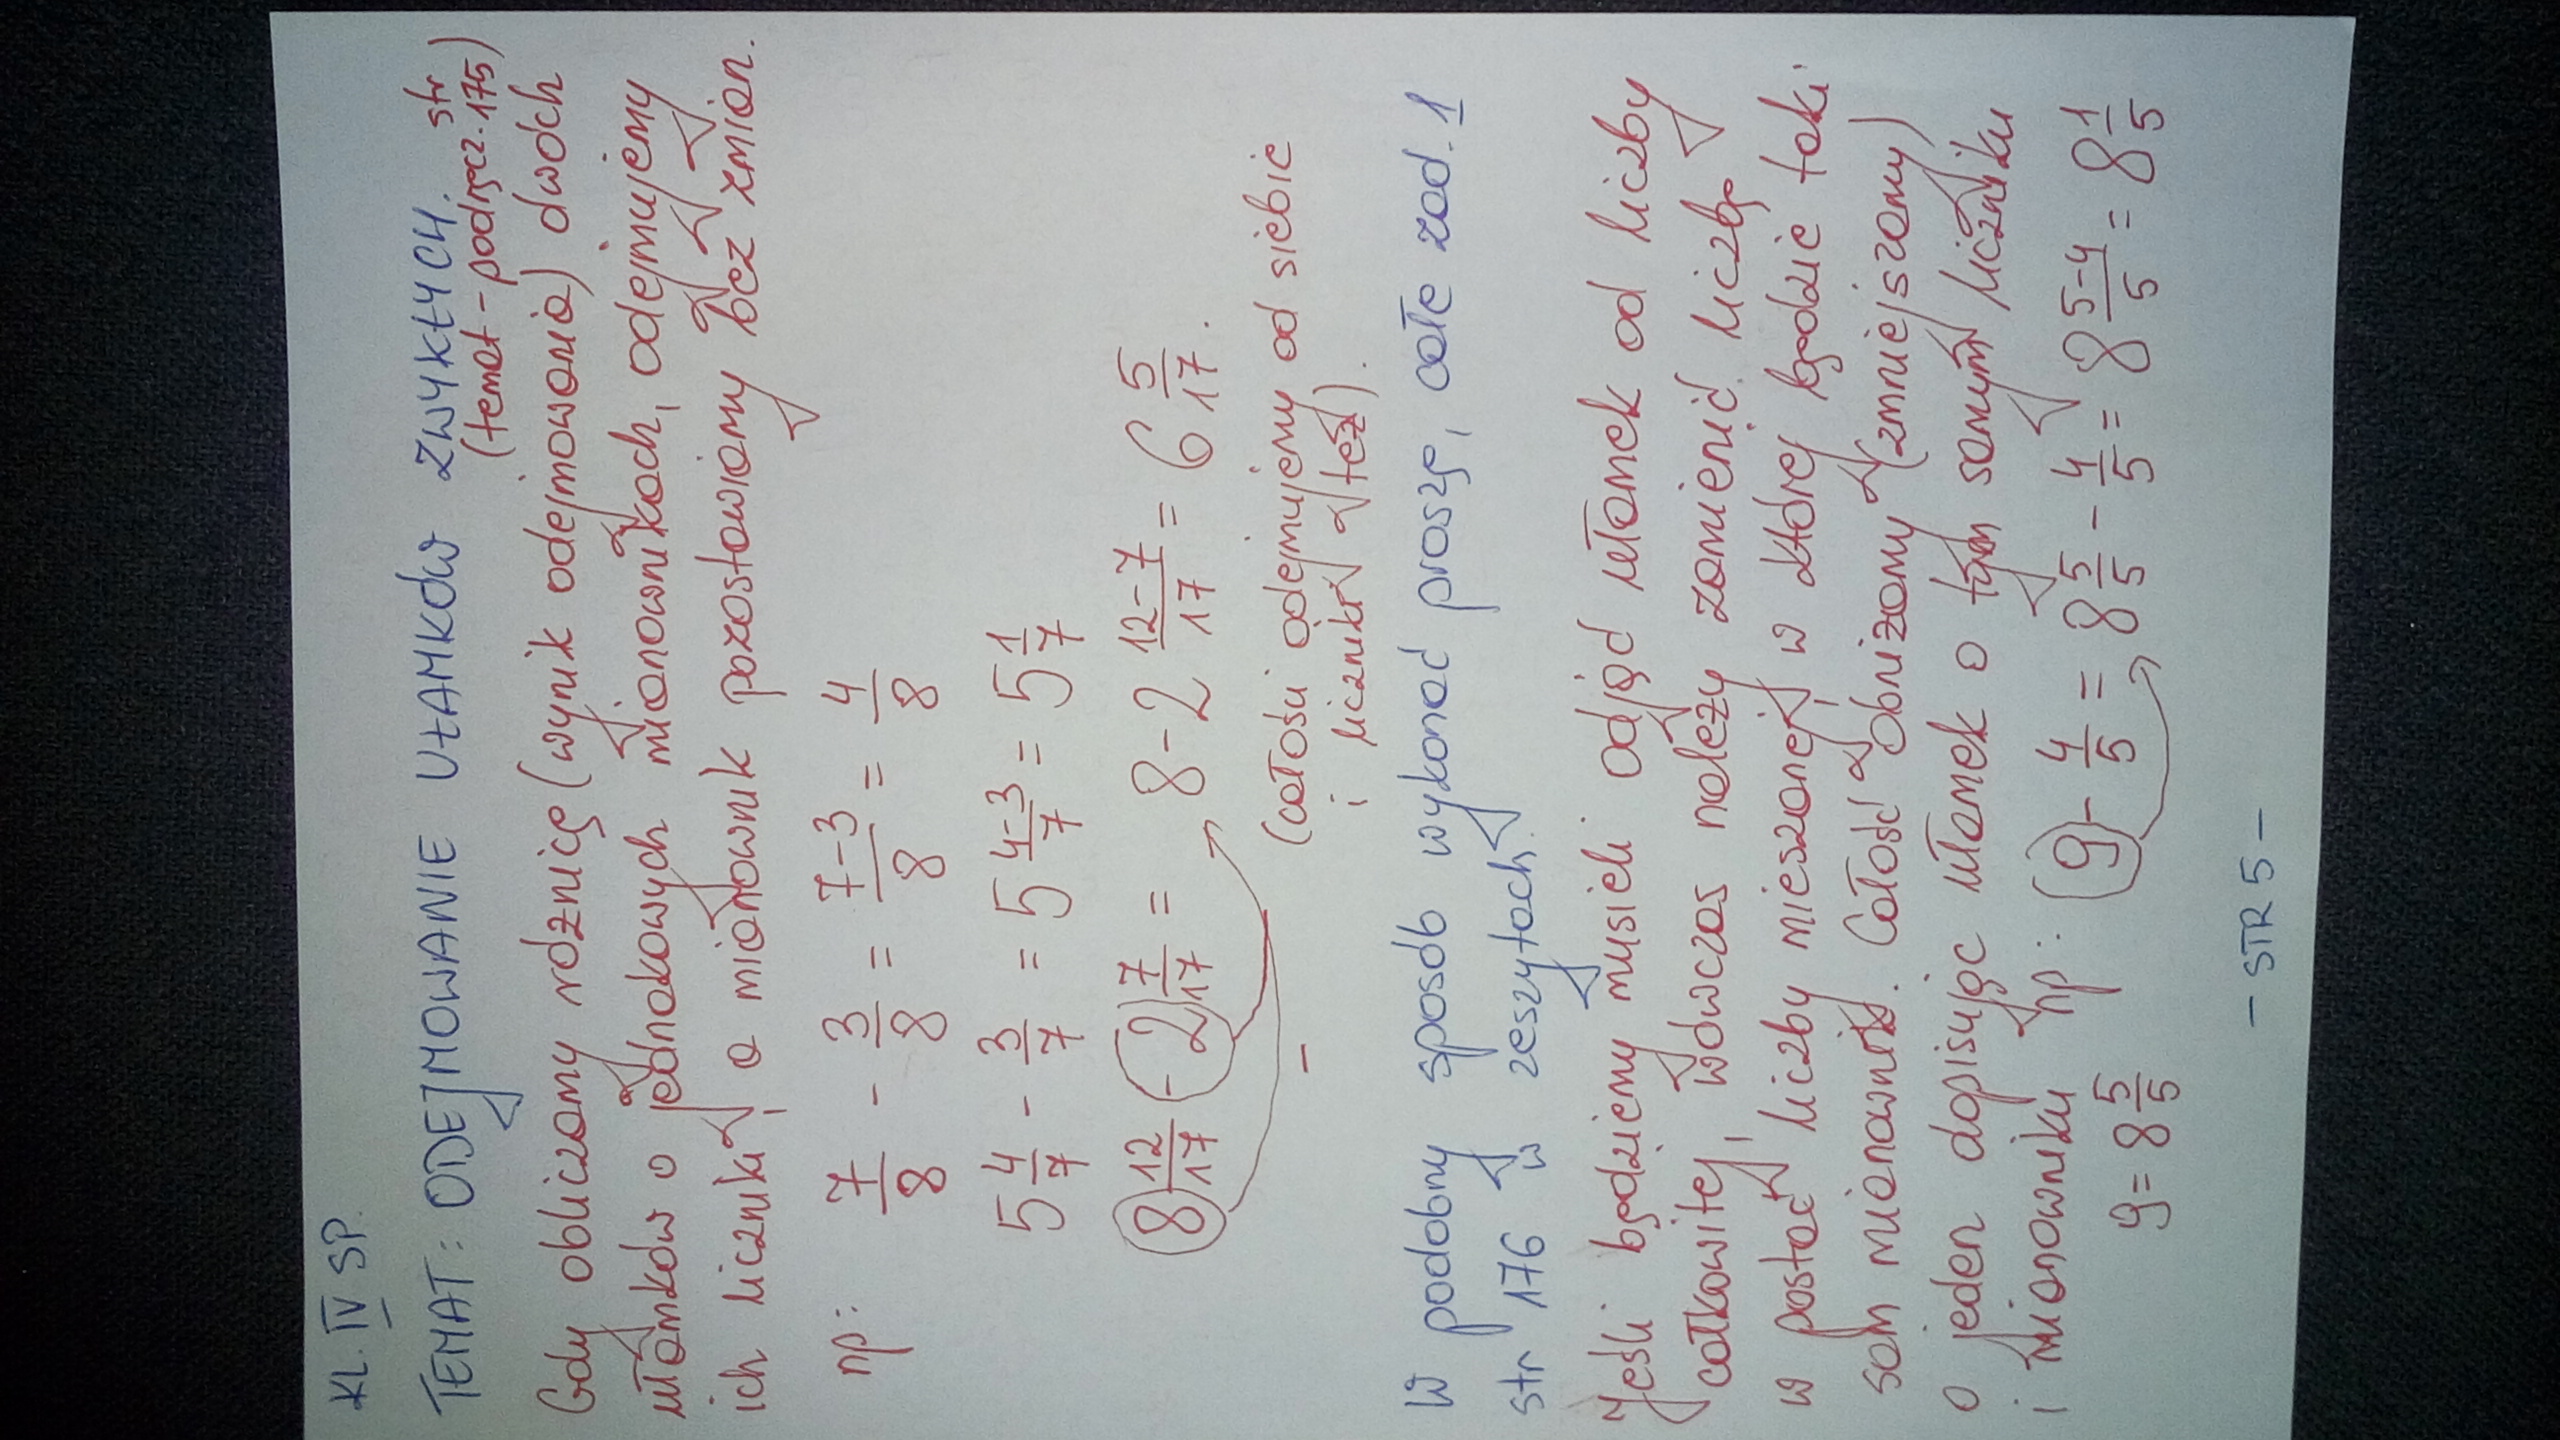 KL. IV SP.
TEMAT: ODEJMOWANIE UŁAMKÓW ZWYKŁYCH.
(temat - podręcz. str 175)
Gdy obliczamy różnicę (wynik odejmowania) dwóch
ułamków o jednakowych mianownikach, odejmujemy
ich liczniki, a mianownik pozostawiamy bez zmian.
np: 7/8 - 3/8 = 7-3/8 = 4/8
5 4/7 - 3/7 = 5 4-3/7 = 5 1/7
8 12/17 - 2 7/17 = 8-2 12-7/17 = 6 5/17.
-
(całości odejmujemy od siebie
i liczniki też).
W podobny sposób wykonać proszę, całe zad. 1
str 176 w zeszytach.
Jeśli będziemy musieli odjąć ułamek od liczby
całkowitej, wówczas należy zamienić liczbę
w postać liczby mieszanej, w której będzie taki
sam mianownik. Całość obniżamy (zmniejszamy)
o jeden dopisując ułamek o tym samym liczniku
i mianowniku np: (9 - 4/5 = 8 5/5 - 4/5 = 8 5-4/5 = 8 1/5
9 = 8 5/5
- STR 5 -